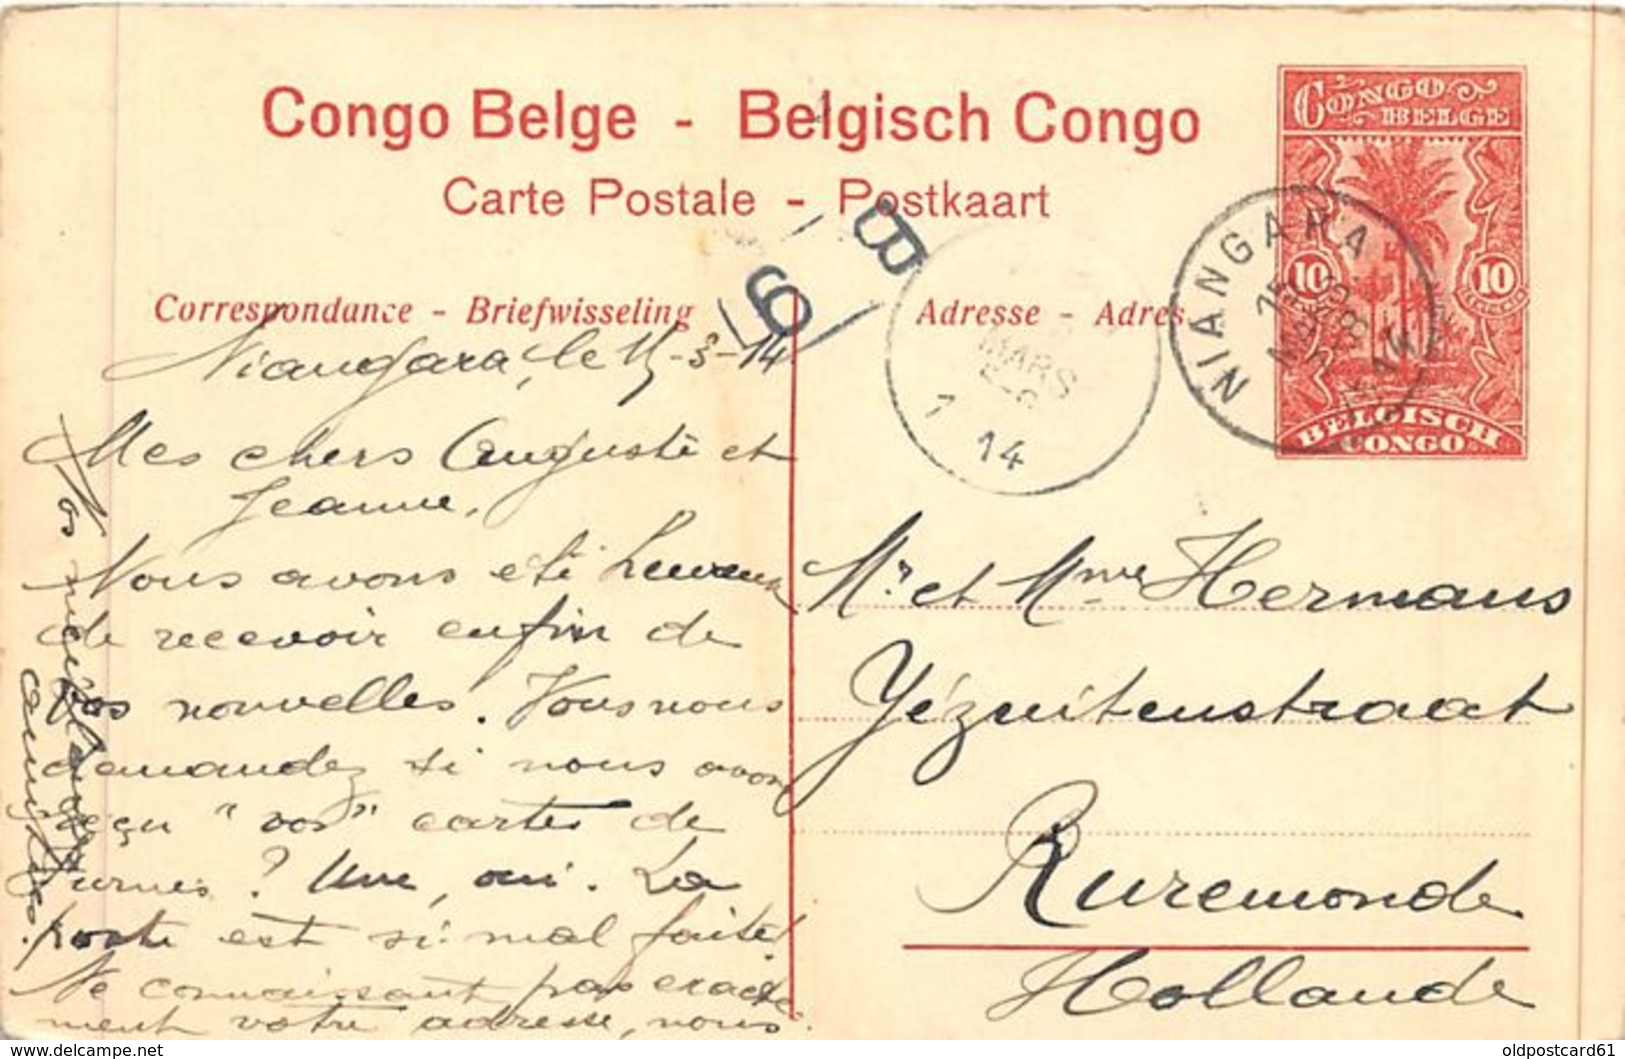 Congo Belge - Belgisch Congo
Carte Postale - Postkaart
CONGO
BELGE
10 10
BELGISCH
CONGO
NIANGARA
15
MARS
MARS
7
14
B
6
Correspondance - Briefwisseling
Adresse - Adres
Niangara, le 15-3-14
Mes chers Auguste et
Jeanne,
Nous avons été heureux
de recevoir enfin de
vos nouvelles. Vous nous
demandez si nous avons
reçu "vos" cartes de
Furnes? Une, oui. La
poste est si mal faite!
Ne connaissant pas exacte-
ment votre adresse, nous
Vos
amitiés.
Mr et Mme Hermans
Yézuitenstraat
Ruremonde
Hollande
www.delcampe.net
oldpostcard61